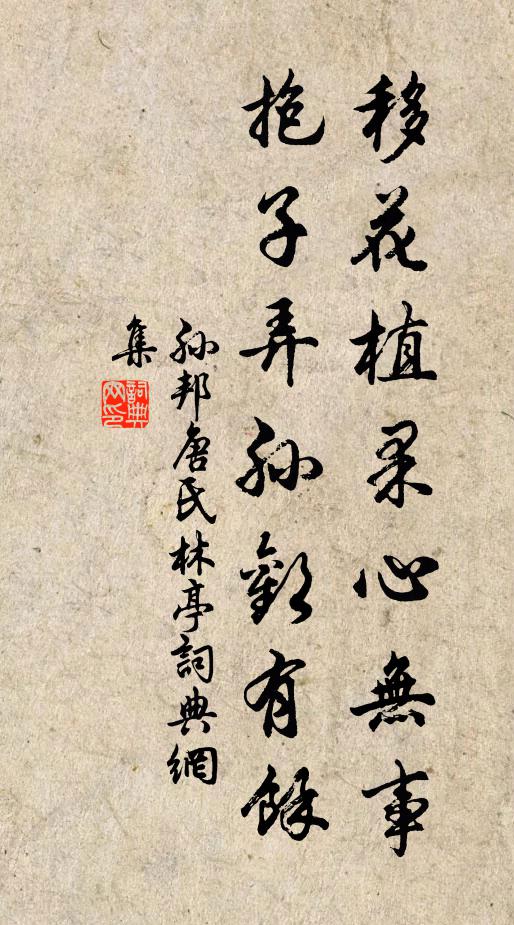 移花植果心無事
抱子弄孫歡有餘
孫邦唐氏林亭詞典網
集
詞典网印